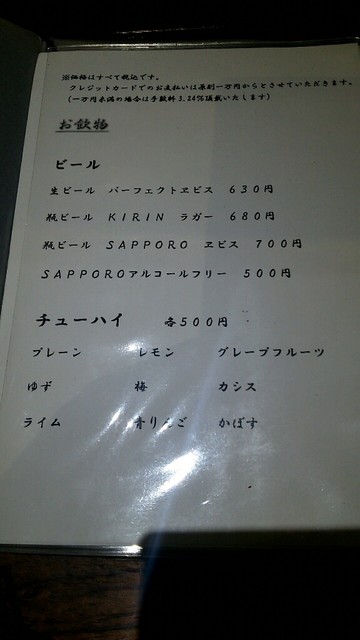 ※価格はすべて税込です。
クレジットカードでのお支払いは原則一万円からとさせていただきます。
(一万円未満の場合は手数料3.24%頂戴いたします)
お飲物
ビール
生ビール パーフェクトヱビス 630円
瓶ビール KIRIN ラガー 680円
瓶ビール SAPPORO ヱビス 700円
SAPPOROアルコールフリー 500円
チューハイ 各500円
プレーン レモン グレープフルーツ
ゆず 梅 カシス
ライム 青りんご かぼす